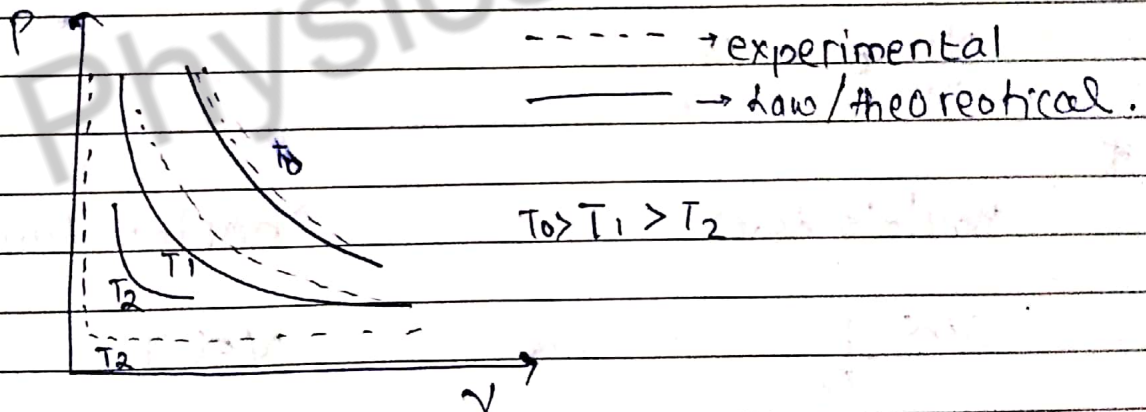 Physics
P
→ experimental
→ Law/theoreotical.
T0
T0> T1 > T2
T1
T2
T2
V